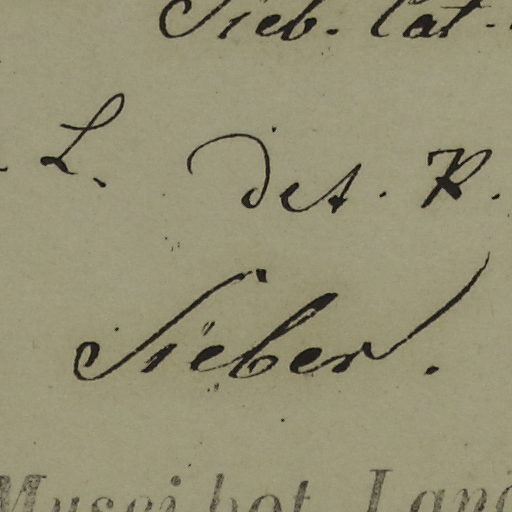 Sieb. Cat.
L. Det. R.
Sieber.
Musei bot. Lund